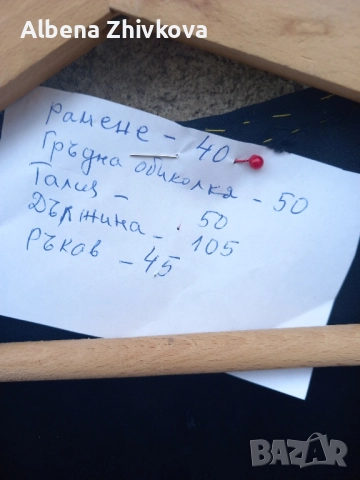 Albena Zhivkova
рамене - 40
Гръдна обиколка - 50
Талия - 50
Дължина - 105
Ръкав - 45
BAZAR